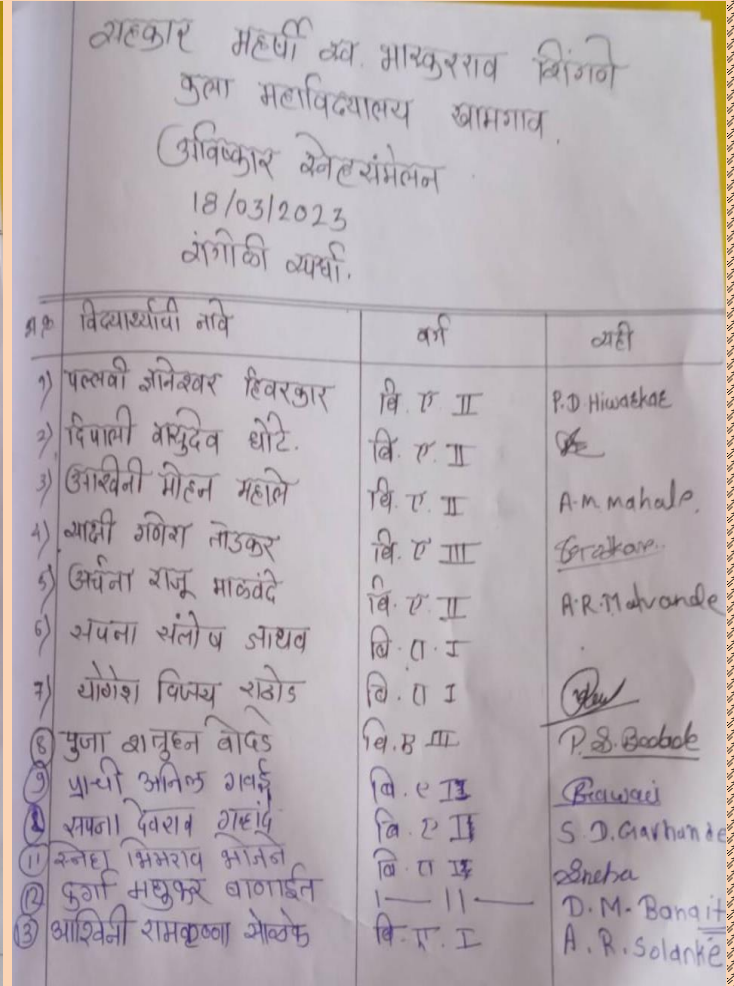 सहकार महर्षी स्व. भास्करराव शिंगने
कला महाविद्यालय खामगाव.
अविष्कार स्नेहसंमेलन
18/03/2023
रांगोळी स्पर्धा.
अ.क्र विद्यार्थ्याची नावे वर्ग सही
१) पल्लवी ज्ञानेश्वर हिवरकार बि. ए II P.D. Hiwarkar
२) दिपाली वासुदेव धोटे. बि. ए. II
३) अश्विनी मोहन महाले बि. ए. II A.M mahale.
४) साक्षी गणेश तोडकर बि. ए III
५) अर्चना राजू माळवंदे बि. ए. II A.R.Malvande
६) सपना संतोष जाधव बि. ए. I
७) योगेश विजय राठोड बि. ए I
8 पुजा शत्रुघ्न बोदडे बि. ए III P.S. Bodade
9 प्राची अनिल गवई बि. ए II Gawai
सपना देवराव गव्हांदे बि. ए II S.D. Gavhande
11 स्नेहा भिमराव भोजने बि. ए II Sneha
12 दुर्गा मधुकर बागाईत I— 11 — D. M. Bangit
13 आश्विनी रामकृष्णा सोळंके बि. ए. I A. R. Solanke